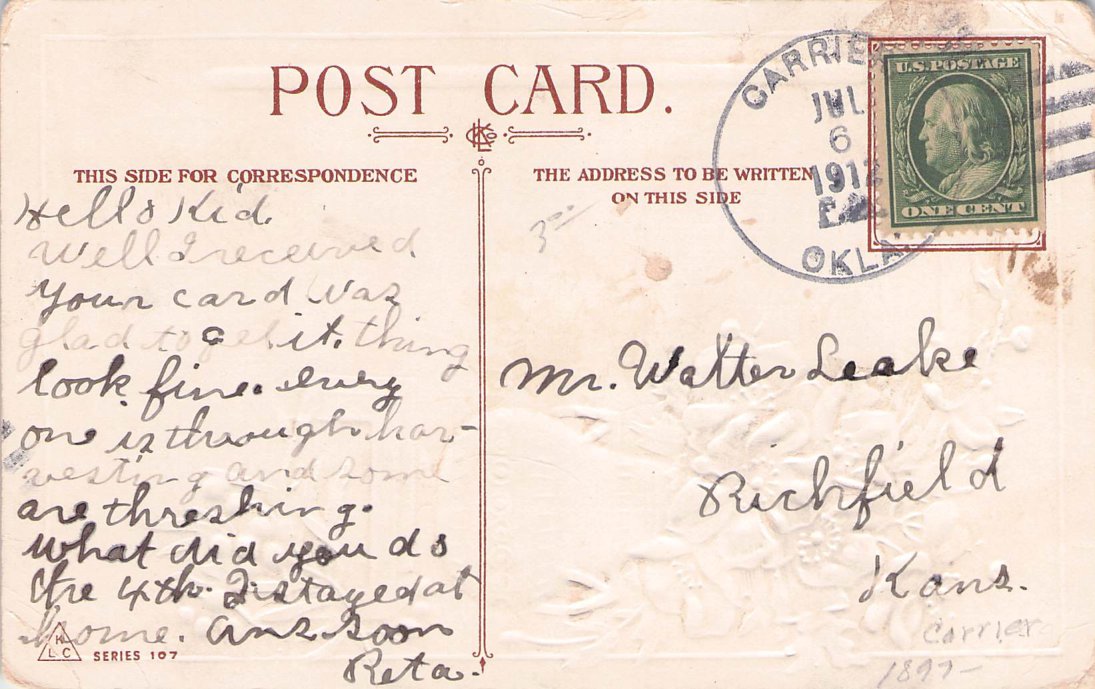 POST CARD.
THIS SIDE FOR CORRESPONDENCE
THE ADDRESS TO BE WRITTEN
ON THIS SIDE
CARRIER
JUL
6
1912
OKLA.
U.S. POSTAGE
ONE CENT
3⁰⁰
Hello Kid.
Well I received
your card was
glad to get it. thing
look fine. every
one is through har-
vesting and some
are threshing.
What did you do
the 4th. I stayed at
home. ans soon
Reta.
Mr. Walter Leake
Richfield
Kans.
Carrier
1897-
K
L C
SERIES 107